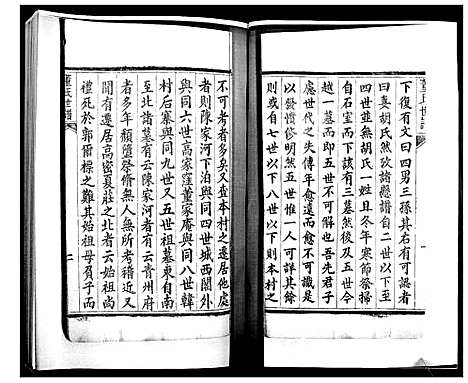 下復有文曰四男三孫其右有可認者
曰真胡氏然攷諸縣譜自二世以下至
四世並無胡氏一姓且冬年寒節祭掃
自石室而下該有三墓然後及五世今
越一墓而即五世不可解也吾先君子
處世代之失傳年愈遠而愈不可識是
以發憤修明然五世惟一人可詳其餘
則否自七世以下八世以下則本村之
不可考者多矣又查本村之遷居他處
者則陳家河下泊與同四世城西關外
與同六世高密窪董家庵與同八世韓
村后寨與同九世又五世祖墓東自南
至北諸墓有云陳家河者有云青州府
者多年頹墮祭脩無人無所考稽近又
有云遷居高密夏莊之北者云始祖尚
禮死於郭爾標之難其始祖母負子而
董氏世譜
二